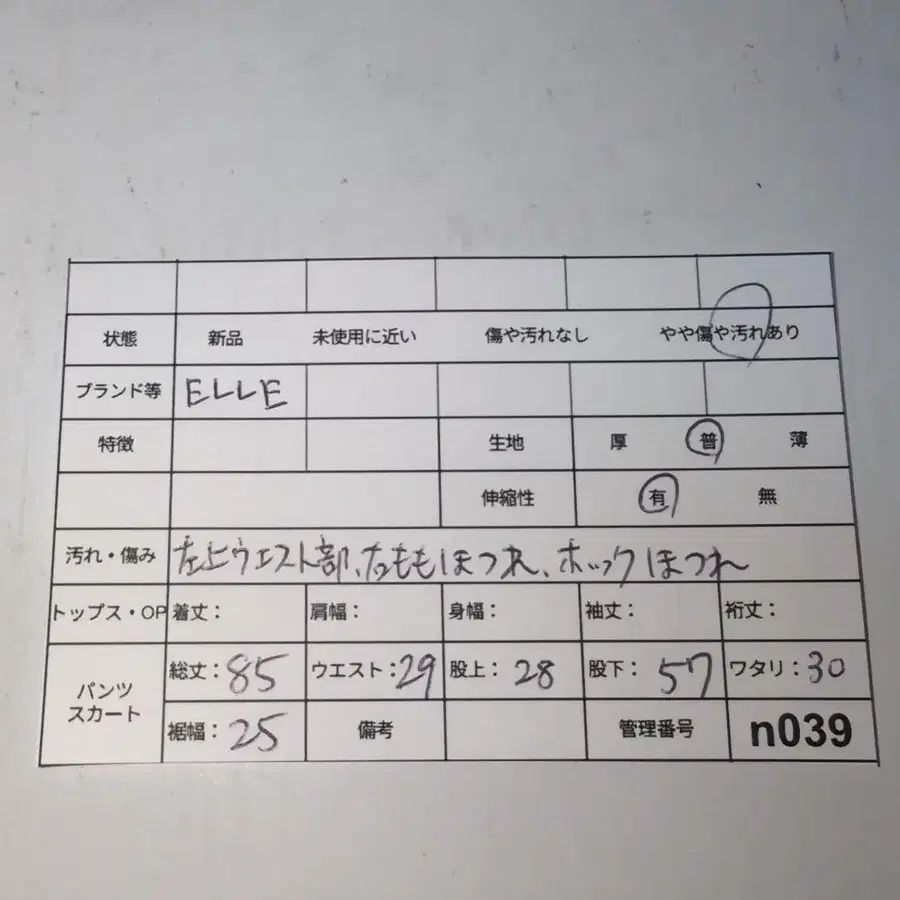 状態 新品 未使用に近い 傷や汚れなし やや傷や汚れあり
ブランド等 ELLE
特徴 生地 厚 普 薄
伸縮性 有 無
汚れ・傷み 左上ウエスト部、右ももほつれ、ホックほつれ
トップス・OP 着丈: 肩幅: 身幅: 袖丈: 裄丈:
パンツ スカート 総丈:85 ウエスト:29 股上:28 股下:57 ワタリ:30
裾幅:25 備考 管理番号 n039